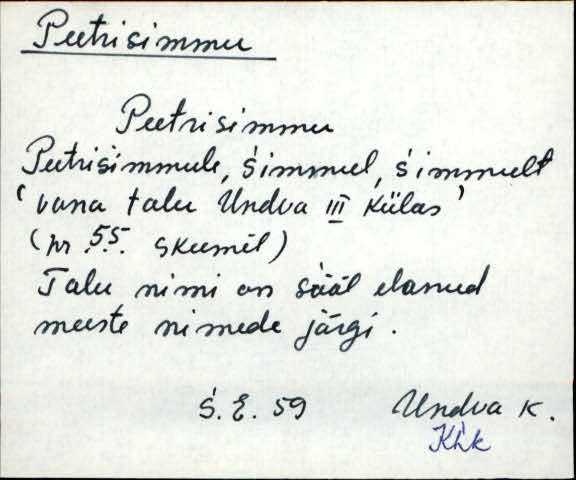 Peetrisimmu
Peetrisimmu
Peetrisimmule, śimmul, śimmult
'vana talu Undva III külas'
(nr. 55. skeemil)
Talu nimi on sääl elanud
meeste nimede järgi.
S. E. 59 Undva k.
Khk